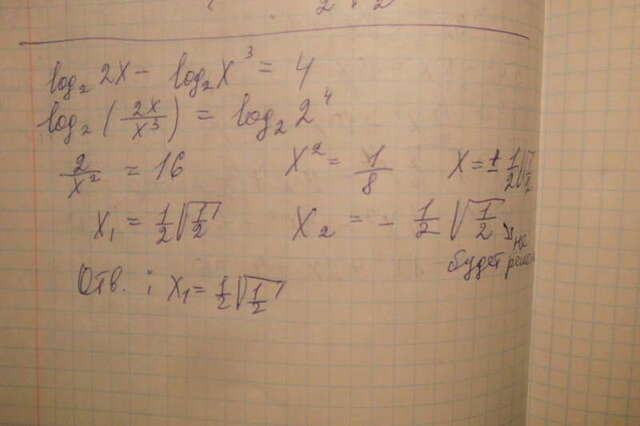 2 · 2
log₂ 2x − log₂ x³ = 4
log₂ (2x/x³) = log₂ 2⁴
2/x² = 16 x² = 1/8 x = ± 1/2 √1/2
x₁ = 1/2 √1/2 x₂ = − 1/2 √1/2 ↘ не
будет
Отв. : x₁ = 1/2 √1/2